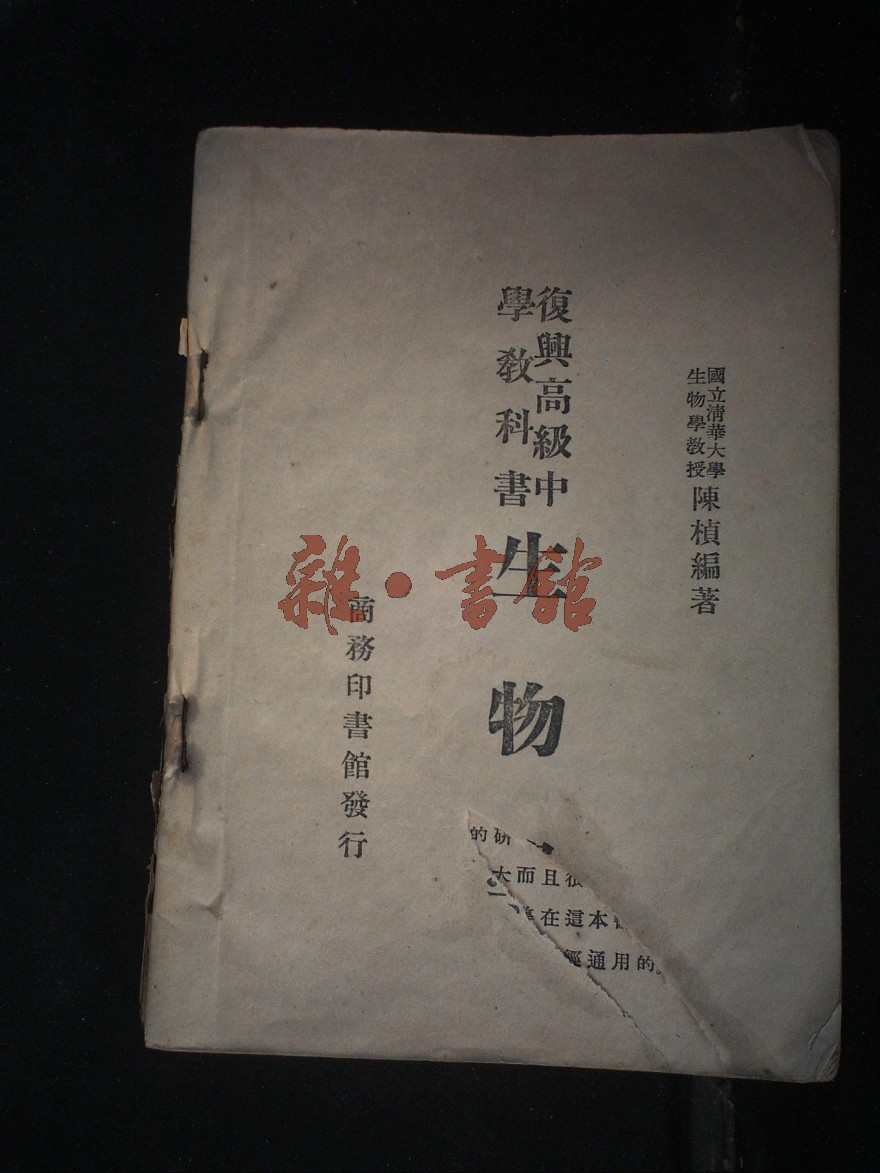 國立清華大學
生物學教授
陳楨編著
復興高級中
學教科書
生物
商務印書館發行
雜·書館
的研
大而且很
在這本
經通用的。